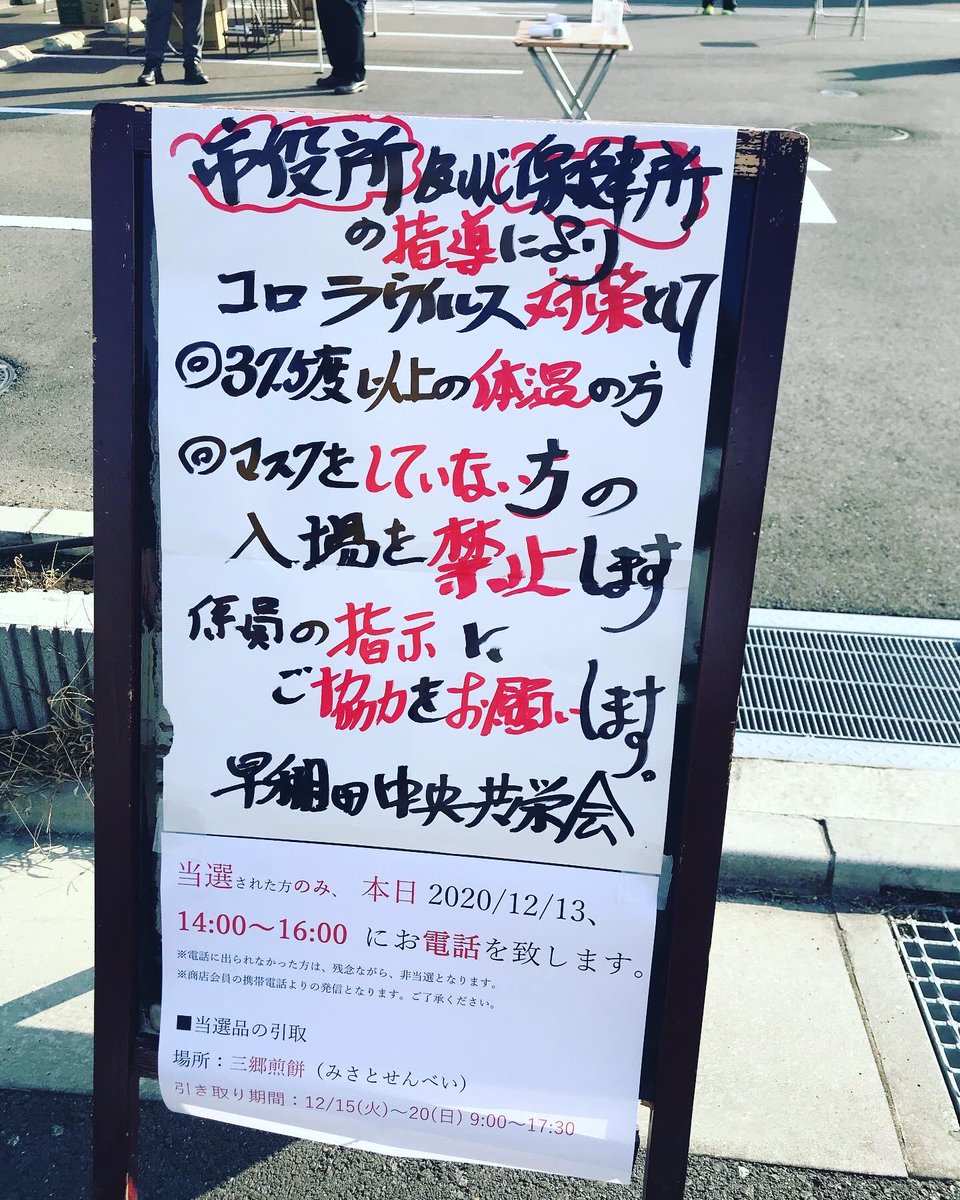 市役所及び保健所
の指導により
コロラウイルス対策として
◎37.5度以上の体温の方
◎マスクをしていない方の
入場を禁止します
係員の指示に
ご協力をお願いします。
早稲田中央共栄会
当選された方のみ、本日 2020/12/13、
14:00～16:00 にお電話を致します。
※電話に出られなかった方は、残念ながら、非当選となります。
※商店会員の携帯電話よりの発信となります。ご了承ください。
■当選品の引取
場所：三郷煎餅（みさとせんべい）
引き取り期間：12/15(火)～20(日) 9:00～17:30